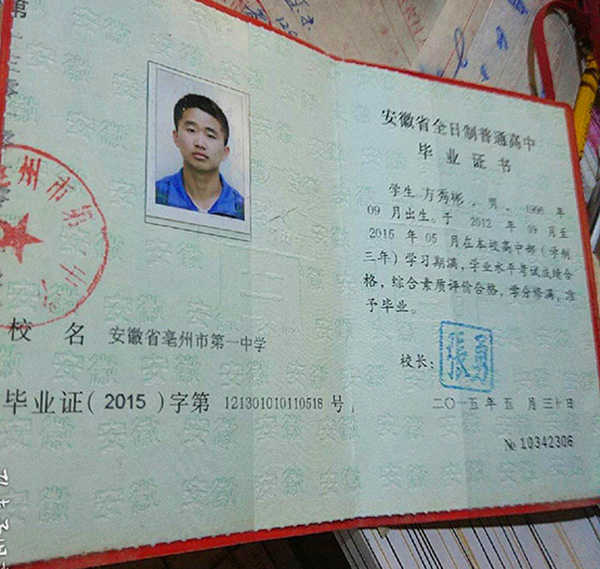 亳州市第一中学
校 名 安徽省亳州市第一中学
毕业证(2015)字第 121301010110518 号
安徽省全日制普通高中
毕业证书
学生 方秀彬 , 男 , 1996 年
09 月出生, 于 2012 年 09 月至
2015 年 05 月在本校高中部(学制
三年)学习期满, 学业水平考试成绩合
格, 综合素质评价合格, 学分修满, 准
予毕业。
校长:
张勇
二〇一五年 五 月三十日
№ 10342306